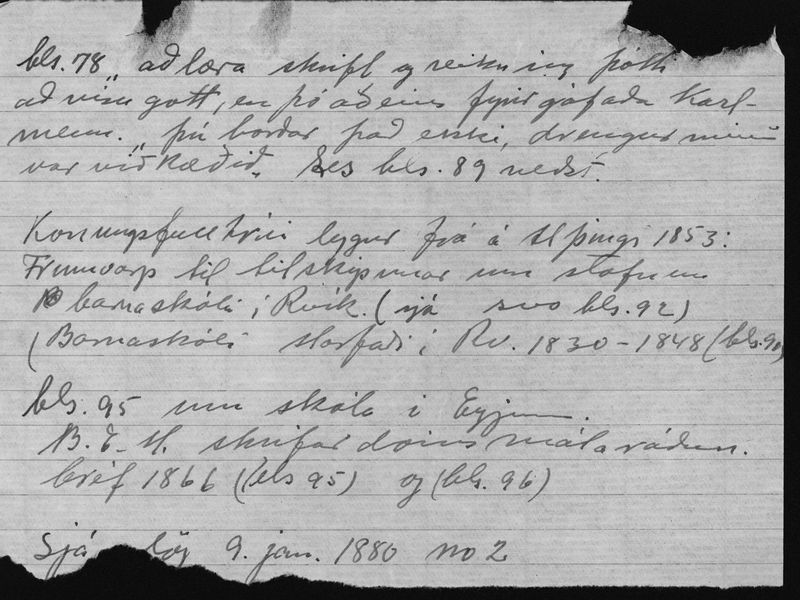 bls. 78 „ að læra skrift og reikning þótti
að vísu gott, en þó aðeins fyrir gáfaða karl-
menn. „ þú borðar það ekki, drengur minn
var viðkvæðið. Les bls. 89 neðst.
Konungsfulltrúi leggur frá á Alþingi 1853:
Frumvarp til tilskipunar um stofnun
barnaskóla í Rvík. (sjá svo bls. 92)
(Barnaskóli starfaði í Rv. 1830-1848 (bls. 90)
bls. 95 um skóla í Eyjum.
B. E. M. skrifar dómsmálaráðun.
bréf 1866 (bls 95) og (bls. 96)
Sjá lög 9. jan. 1880 no 2